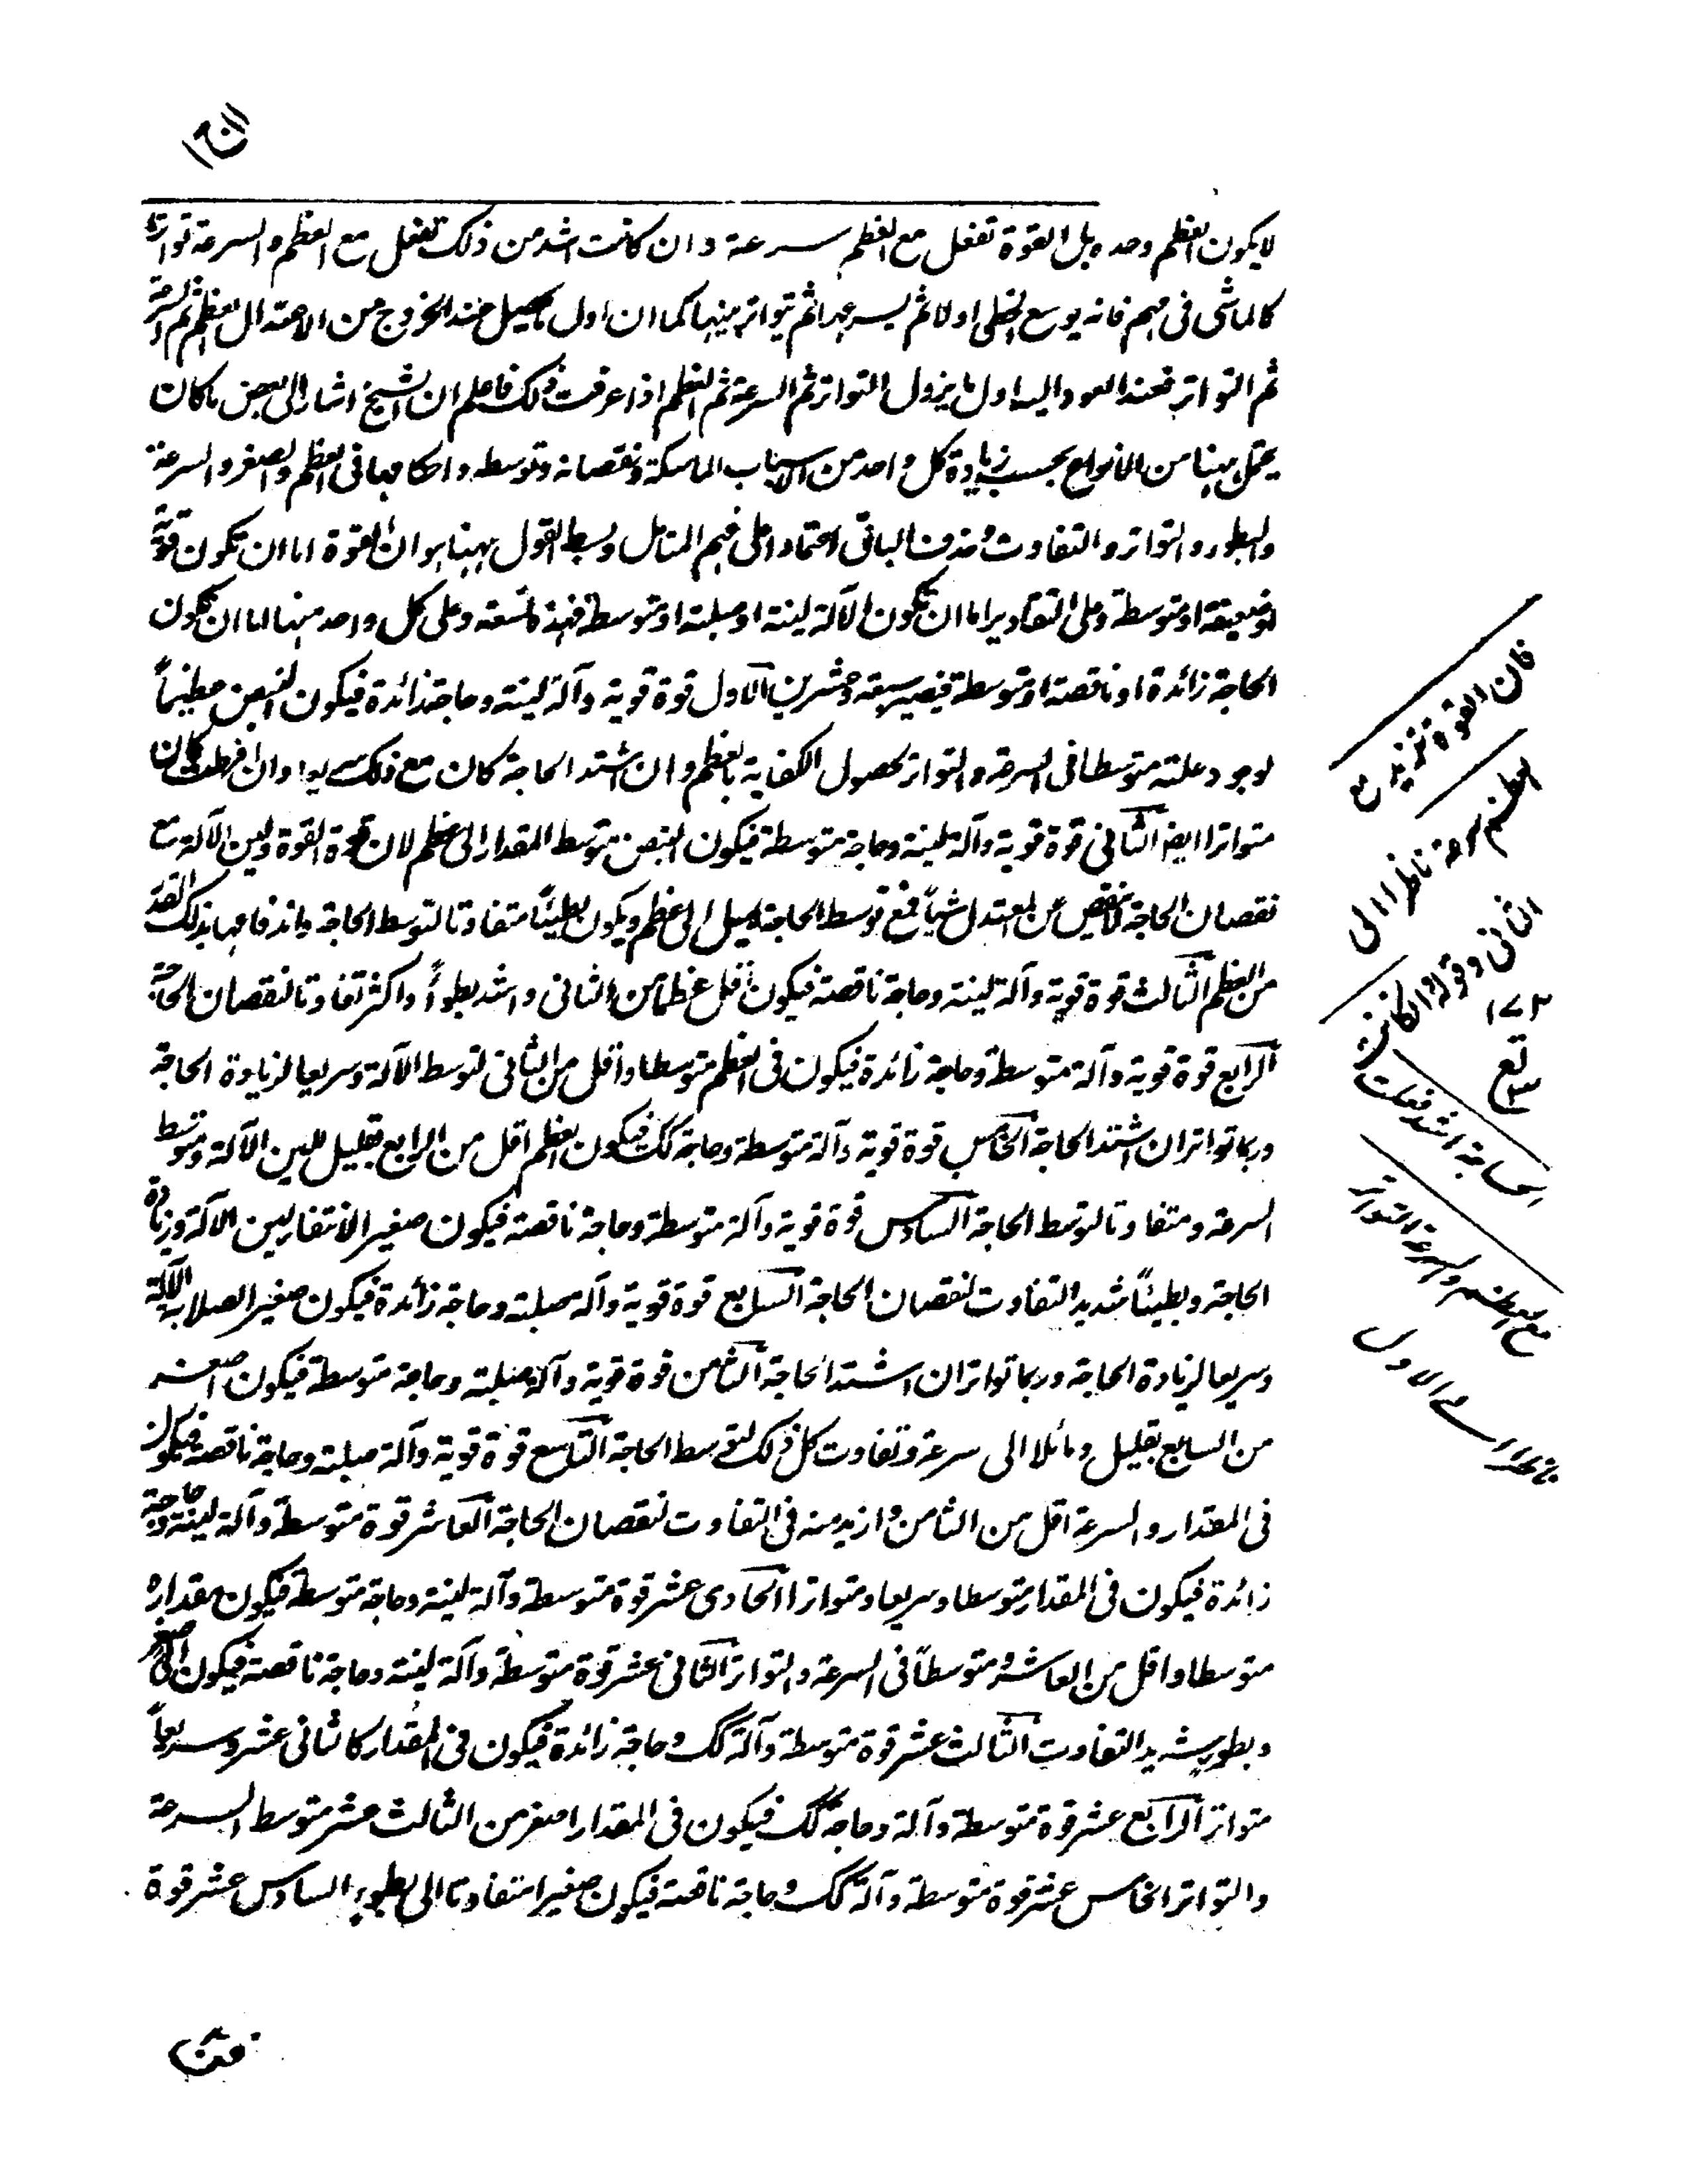 لا يكون العظم وحده بل القوة تفعل مع العظم سرعة وان كانت اشد من ذلك تفعل مع العظم والسرعة تواترا
كالماشى فى مهم فانه يوسع الخطى اولا ثم يسرعها ثم يتواتر بينها كما ان اول ما يحصل عند الخروج من الاعتدال العظم ثم السرعة
ثم التواتر فعند العود اليه اول ما يزول التواتر ثم السرعة ثم العظم اذا عرفت ذلك فاعلم ان الشيخ اشار الى بعض ما كان
يحتمل ههنا من الانواع بحسب زيادة كل واحد من الاسباب الماسكة ونقصانه وتوسطه واحكامها فى العظم والصغر والسرعة
والبطوء والتواتر والتفاوت وحذف الباقى اعتمادا على فهم المتامل وبسط القول ههنا هو ان القوة اما ان تكون قوية
او ضعيفة او متوسطة وعلى التقادير اما ان تكون الآلة لينة او صلبة او متوسطة فهذه تسعة وعلى كل واحد منها اما ان تكون
الحاجة زائدة او ناقصة او متوسطة فيصير سبعة وعشرين الاول قوة قوية وآلة لينة وحاجة زائدة فيكون النبض عظيماً
لوجود علته متوسطا فى السرعة والتواتر لحصول الكفاية بالعظم وان اشتد الحاجة كان مع ذلك سريعا وان افرطت كان
متواترا ايضا الثانى قوة قوية وآلة لينة وحاجة متوسطة فيكون النبض متوسط المقدار الى عظم لان قوة القوة ولين الآلة مع
نقصان الحاجة لا ينقص عن المعتدل شيأً فمع توسط الحاجة يميل الى عظم ويكون بطيئاً متفاوتا لتوسط الحاجة واندفاعها بذلك القدر
من العظم الثالث قوة قوية وآلة لينة وحاجة ناقصة فيكون اقل عظماً من الثانى واشد بطوأً واكثر تفاوتا لنقصان الحاجة
الرابع قوة قوية وآلة متوسطة وحاجة زائدة فيكون فى العظم متوسطا واقل من الثانى لتوسط الآلة وسريعا لزيادة الحاجة
وربما تواتر ان اشتد الحاجة الخامس قوة قوية وآلة متوسطة وحاجة كك فيكون العظم اقل من الرابع بقليل للين الآلة ومتوسط
السرعة ومتفاوتا لتوسط الحاجة السادس قوة قوية وآلة متوسطة وحاجة ناقصة فيكون صغيرا لانتفا لين الآلة وزيادة
الحاجة وبطيئاً شديد التفاوت لنقصان الحاجة السابع قوة قوية وآلة صلبة وحاجة زائدة فيكون صغيرا لصلابة الآلة
وسريعا لزيادة الحاجة وربما تواتر ان اشتد الحاجة الثامن قوة قوية وآلة صلبة وحاجة متوسطة فيكون اصغر
من السابع بقليل ومائلا الى سرعة وتفاوت كل ذلك لتوسط الحاجة التاسع قوة قوية وآلة صلبة وحاجة ناقصة فيكون
فى المقدار والسرعة اقل من الثامن وازيد منه فى التفاوت لنقصان الحاجة العاشر قوة متوسطة وآلة لينة وحاجة
زائدة فيكون فى المقدار متوسطا وسريعا ومتواترا الحادى عشر قوة متوسطة وآلة لينة وحاجة متوسطة فيكون مقداره
متوسطا واقل من العاشر ومتوسطاً فى السرعة والتواتر الثانى عشر قوة متوسطة وآلة لينة وحاجة ناقصة فيكون الى صغر
وبطوء شديد التفاوت الثالث عشر قوة متوسطة وآلة كك وحاجة زائدة فيكون فى المقدار كالثانى عشر وسريعاً
متواترا الرابع عشر قوة متوسطة وآلة وحاجة كك فيكون فى المقدار اصغر من الثالث عشر متوسط السرعة
والتواتر الخامس عشر قوة متوسطة وآلة كك وحاجة ناقصة فيكون صغيرا متفاوتا الى بطوء السادس عشر قوة
فان القوة تزيد مع
العظم سرعة ناظرا الى
الثانى وقوله وان كانت
١٧٣
الحاجة اشد فعلت
مع العظم والسرعة التواتر
الى الاول